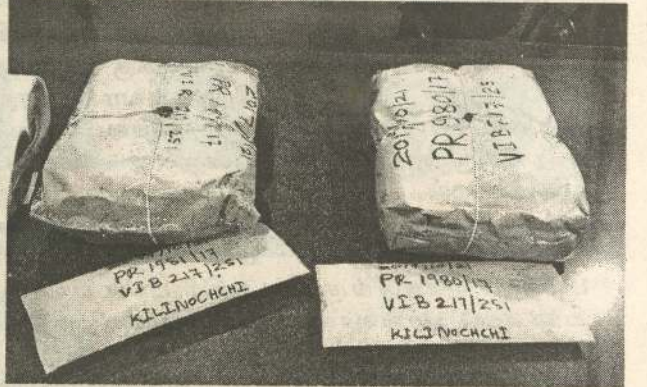 PR
VIB
2017/10/21
PR 980/17
VIB 217/251
PR 1981/17
VIB 217/251
KILINOCHCHI
PR 1980/17
VIB 217/251
KILINOCHCHI